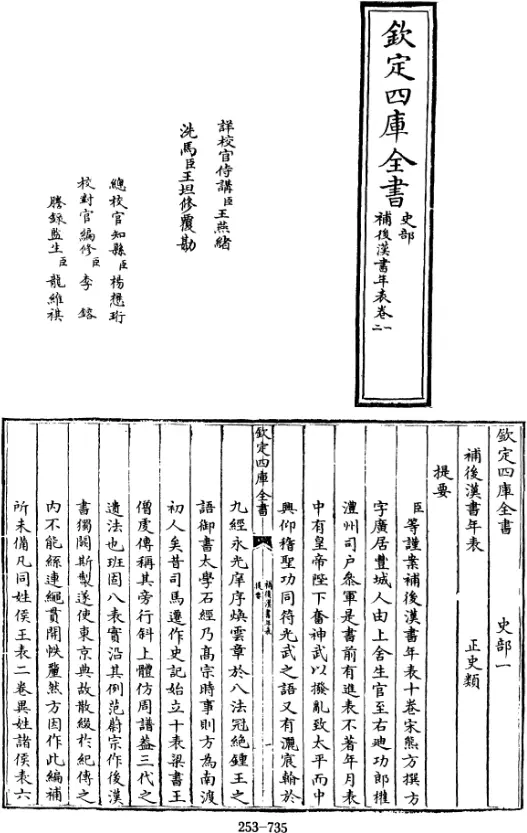 欽定四庫全書
史部
補後漢書年表卷一二
詳校官侍講臣王燕緒
洗馬臣王坦修覆勘
總校官知縣臣楊懋珩
校對官編修臣李鎔
謄錄監生臣龍維祺
欽定四庫全書 史部一
補後漢書年表 正史類
提要
臣等謹案補後漢書年表十卷宋熊方撰方
字廣居豐城人由上舍生官至右迪功郎權
澧州司戶叅軍是書前有進表不著年月表
中有皇帝陛下奮神武以撥亂致太平而中
興仰稽聖功同符光武之語又有灑宸翰於
欽定四庫全書
補後漢書年表
提要
一
九經永光庠序煥雲章於八法冠絶鍾王之
語御書太學石經乃髙宗時事則方為南渡
初人矣昔司馬遷作史記始立十表梁書王
僧虔傳稱其旁行斜上體仿周譜葢三代之
遺法也班固八表實沿其例范蔚宗作後漢
書獨闕斯製遂使東京典故散綴扵紀傳之
内不能絲連繩貫開帙釐然方因作此編補
所未備凡同姓侯王表二卷異姓諸侯表六
253-735